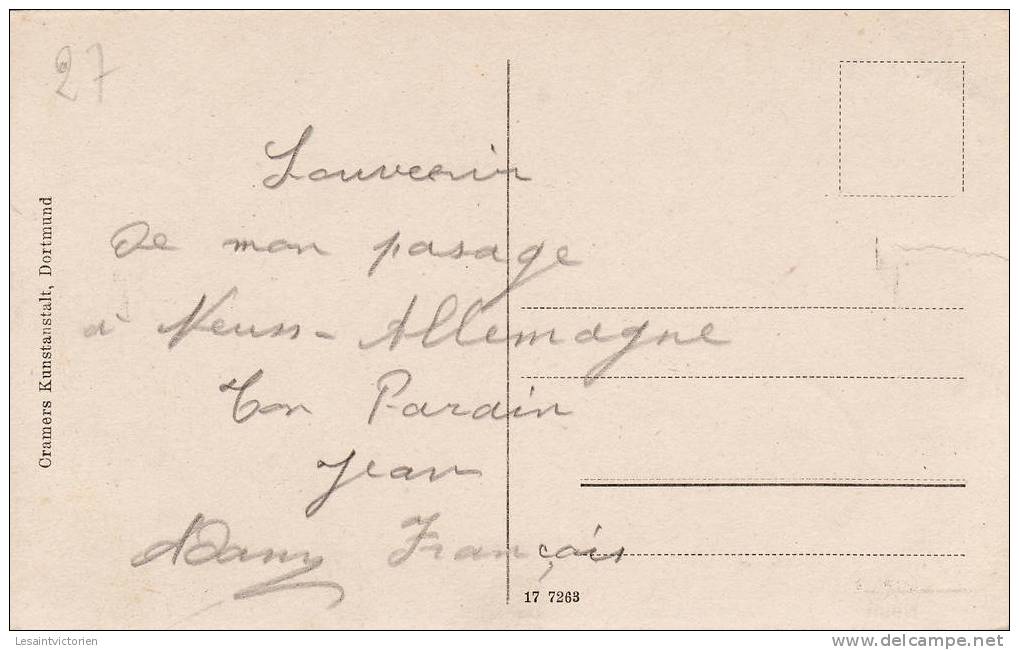 27
Souvenir
De mon pasage
à Neuss-Allemagne
Ton Pardin
Jean
Adam François
Cramers Kunstanstalt, Dortmund
17 7263
Lesaintvictorien
delcampe.net